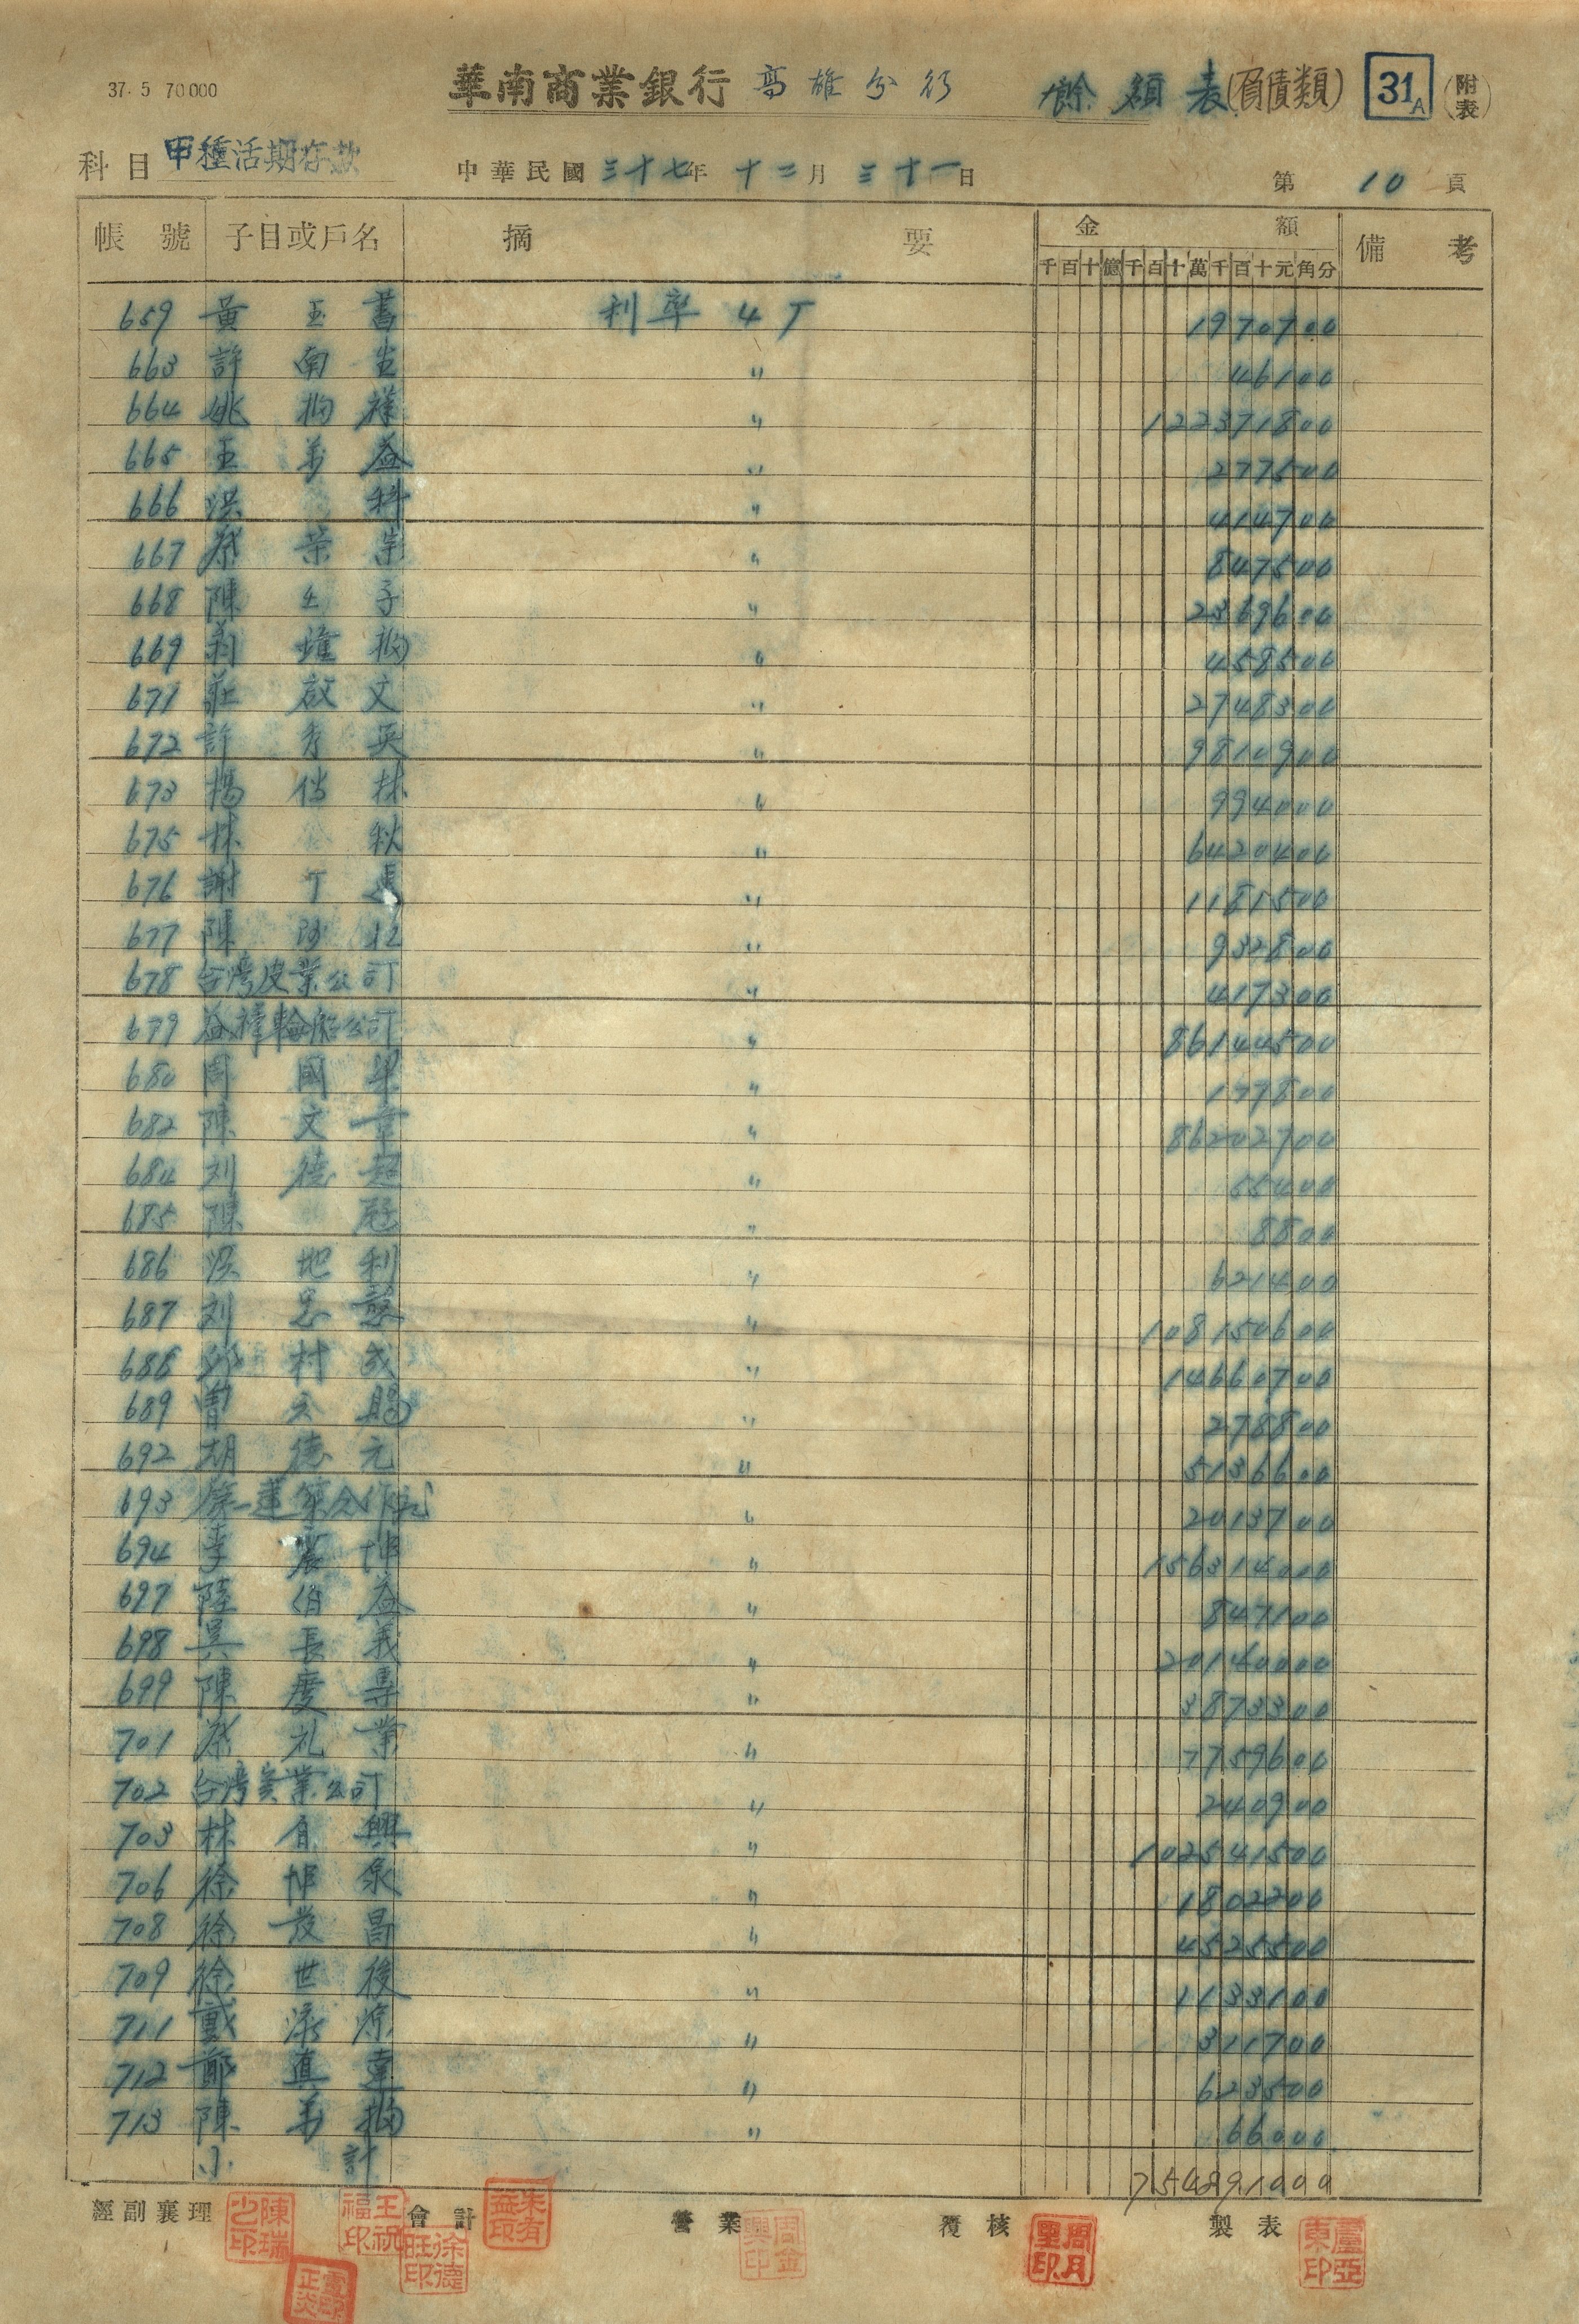 37. 5 70000
華南商業銀行 高雄分行 餘額表(負債類) 31A (附表)
科目 甲種活期存款 中華民國三十七年十二月三十一日 第10頁
帳號 子目或戶名 摘要 金額 備考
千百十億千百十萬千百十元角分
659 黃玉書 利率4丁 1970700
663 許南 〃 46100
664 姚 〃 122371800
665 王萬益 〃 277500
666 洪科 〃 414700
667 蔡崇 〃 847500
668 陳子 〃 2369600
669 〃 458500
671 莊啟文 〃 2748300
672 許秀英 〃 9810900
673 楊林 〃 994000
675 林秋 〃 6420400
676 謝丁 〃 1181500
677 陳 〃 932800
678 台灣皮業公司 〃 417300
679 益祥輪船公司 〃 86144500
680 周國 〃 177800
682 陳文章 〃 86202700
684 刘德超 〃 55400
685 陳 〃 8800
686 洪地利 〃 621400
687 刘 〃 108150600
688 村成 〃 14660700
689 曾天賜 〃 278800
692 胡德元 〃 5136600
693 〃 2013700
694 李震坤 〃 156314000
697 陸伯益 〃 847100
698 吳長義 〃 20140000
699 陳慶 〃 3873300
701 蔡礼業 〃 7759600
702 台灣实業公司 〃 240900
703 林自興 〃 102541500
706 徐坤泉 〃 1802200
708 徐發昌 〃 4525500
709 徐世後 〃 1133100
711 戴源 〃 311700
712 鄭真 〃 623500
713 陳萬 〃 66000
小計 754891000
經副襄理 會計 營業 覆核 製表
陳瑞 王祝福印 徐德旺印 朱有益印 周金興印 周月里印 盧亞東印